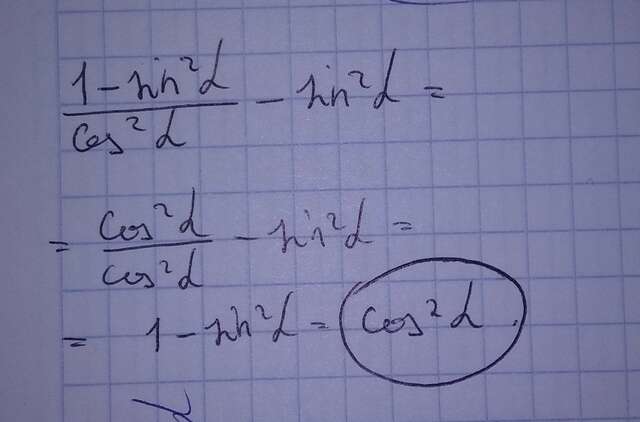 (1 - sin²α)/(cos²α) - sin²α =
= (cos²α)/(cos²α) - sin²α =
= 1 - sin²α = cos²α.